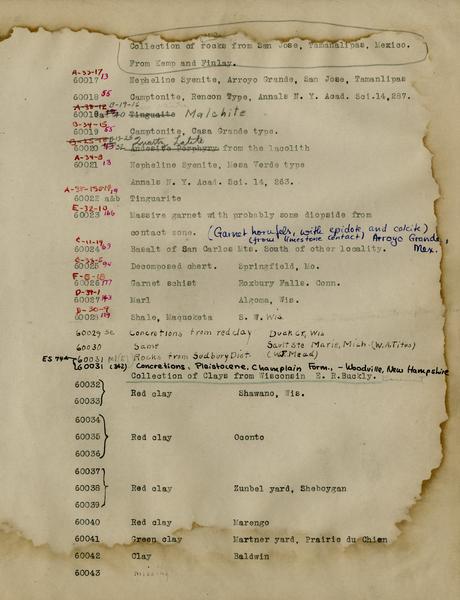 Collection of rocks from San Jose, Tamanalipas, Mexico.
From Kemp and Finlay.
A-33-17
60017 13 Nepheline Syenite, Arroyo Grande, San Jose, Tamanlipas
60018 55 Camptonite, Rencon Type, Annals N. Y. Acad. Sci.14,287.
A-38-12 B-19-16
60018a Tinguaite Malchite
B-34-15
60019 55 Camptonite, Casa Grande type.
Quartz Latite
60020 Andesite Porphyry from the lacolith
A-34-8
60021 13 Nepheline Syenite, Mesa Verde type
Annals N. Y. Acad. Sci. 14, 263.
60022 a&b Tinguarite
E-32-10
60023 166 Massive garnet with probably some diopside from
contact zone. (Garnet hornfels, with epidote and calcite)
(from limestone contact) Arroyo Grande, Mex.
C-11-19
60024 63 Basalt of San Carlos Mts. South of other locality.
60025 Decomposed chert. Springfield, Mo.
F-5-18
60026 177 Garnet schist Roxbury Falls. Conn.
D-39-1
60027 143 Marl Algoma, Wis.
D-30-7
60028 Shale, Maquoketa S. W. Wis.
60029 Concretions from red clay Duck Cr, Wis
60030 Same Sault Ste Marie, Mich. (W.A.Titus)
60031 Rocks from Sudbury Dist. (W.J. Mead)
60031 (362) Concretions, Pleistocene, Champlain Form., - Woodville, New Hampshire
Collection of Clays from Wisconsin E. R.Buckly.
60032
60033 Red clay Shawano, Wis.
60034
60035 Red clay Oconto
60036
60037
60038 Red clay Zunbel yard, Sheboygan
60039
60040 Red clay Marengo
60041 Green clay Martner yard, Prairie du Chien
60042 Clay Baldwin
60043 Missing